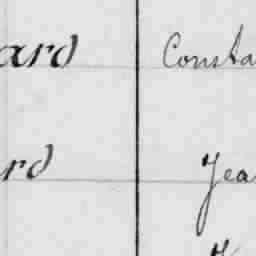 ard Consta
rd Jea